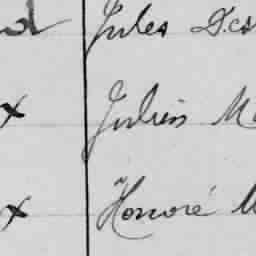 d Jules Des
x Julien M
x Honoré M